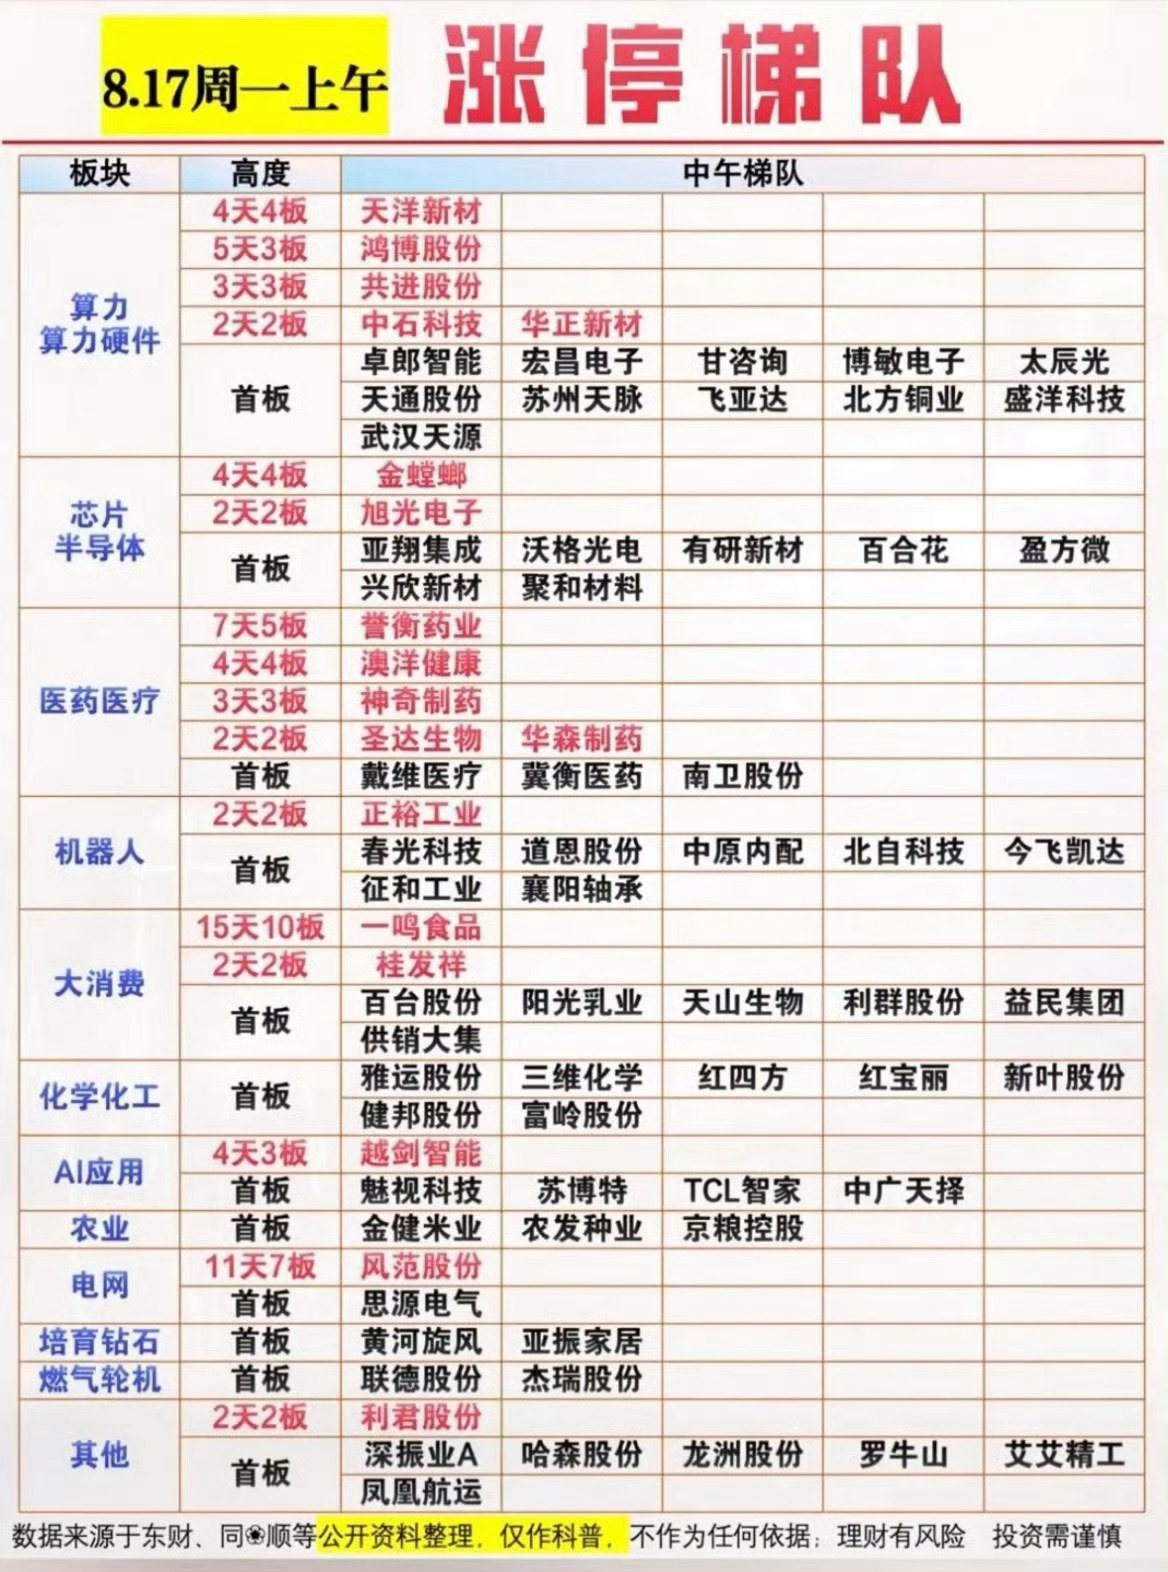 8.17周一上午 涨停梯队
板块 高度 中午梯队
算力
算力硬件
4天4板 天洋新材
5天3板 鸿博股份
3天3板 共进股份
2天2板 中石科技 华正新材
首板
卓郎智能 宏昌电子 甘咨询 博敏电子 太辰光
天通股份 苏州天脉 飞亚达 北方铜业 盛洋科技
武汉天源
芯片
半导体
4天4板 金螳螂
2天2板 旭光电子
首板
亚翔集成 沃格光电 有研新材 百合花 盈方微
兴欣新材 聚和材料
医药医疗
7天5板 誉衡药业
4天4板 澳洋健康
3天3板 神奇制药
2天2板 圣达生物 华森制药
首板 戴维医疗 冀衡医药 南卫股份
机器人
2天2板 正裕工业
首板
春光科技 道恩股份 中原内配 北自科技 今飞凯达
征和工业 襄阳轴承
大消费
15天10板 一鸣食品
2天2板 桂发祥
首板
百合股份 阳光乳业 天山生物 利群股份 益民集团
供销大集
化学化工
首板
雅运股份 三维化学 红四方 红宝丽 新叶股份
健邦股份 富岭股份
AI应用
4天3板 越剑智能
首板 魅视科技 苏博特 TCL智家 中广天择
农业 首板 金健米业 农发种业 京粮控股
电网
11天7板 风范股份
首板 思源电气
培育钻石 首板 黄河旋风 亚振家居
燃气轮机 首板 联德股份 杰瑞股份
其他
2天2板 利君股份
首板
深振业A 哈森股份 龙洲股份 罗牛山 艾艾精工
凤凰航运
数据来源于东财、同❀顺等公开资料整理，仅作科普，不作为任何依据；理财有风险 投资需谨慎